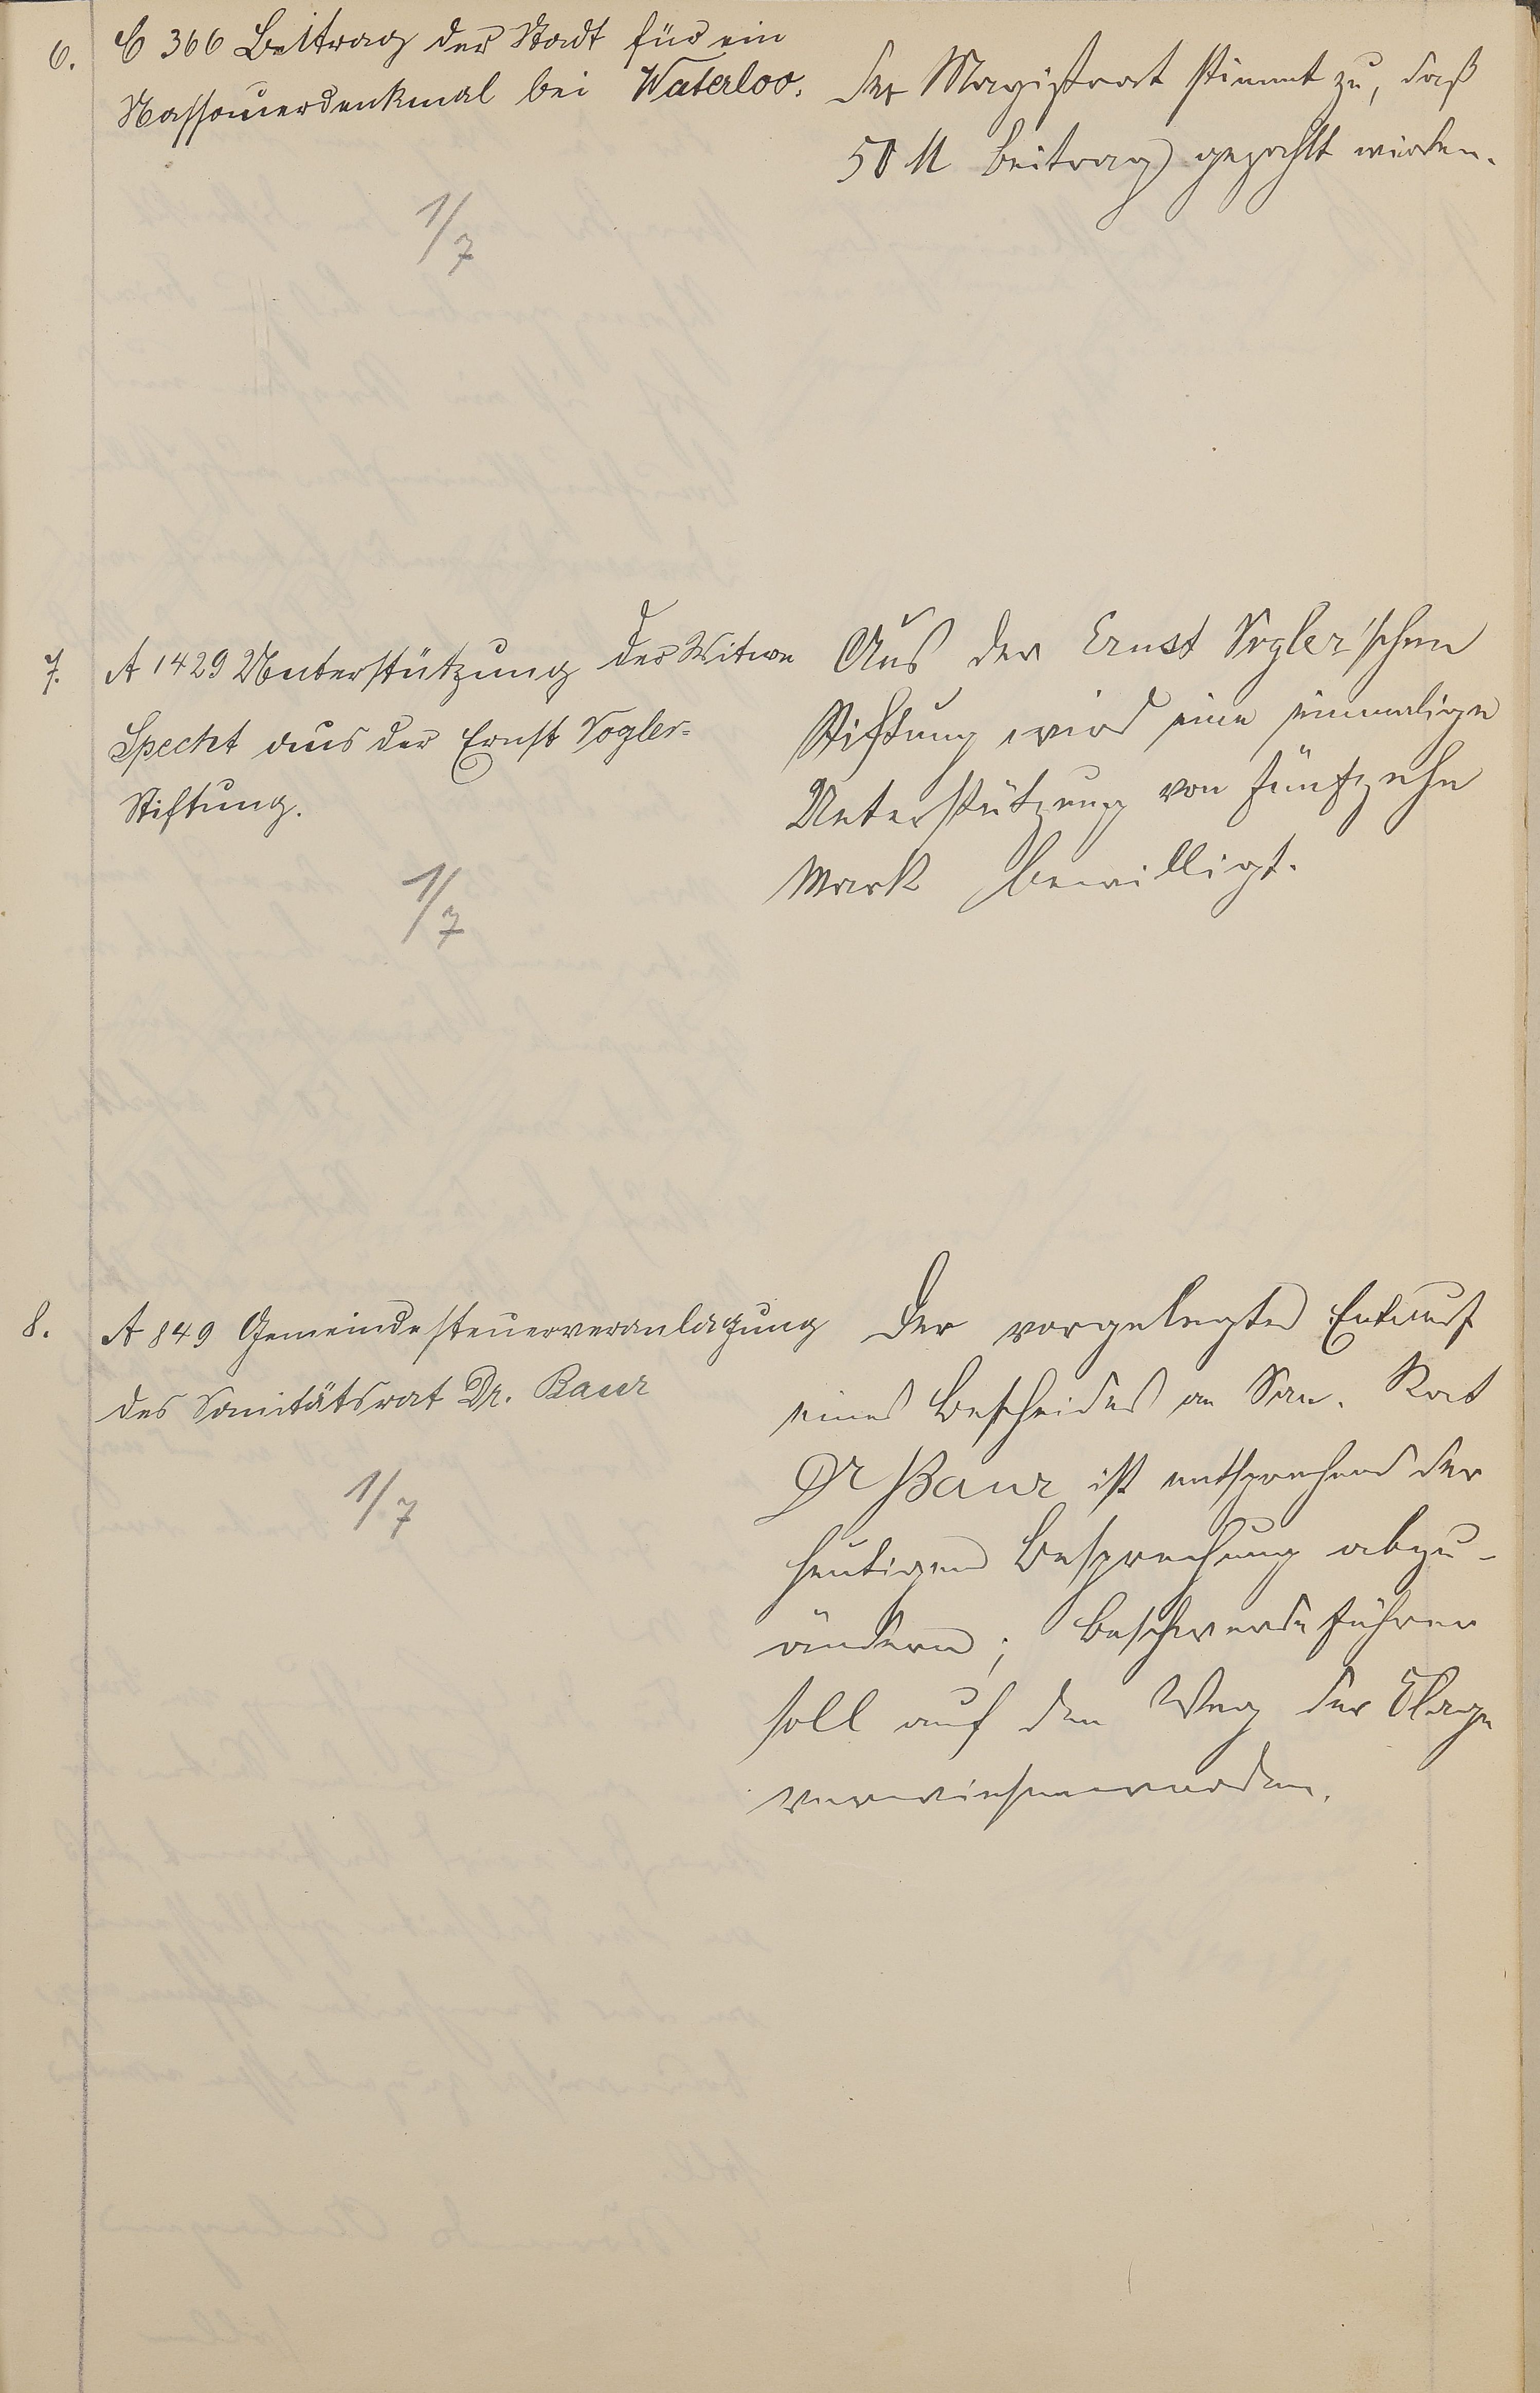 6.
C 366 Beitrag der Stadt für ein
Nassauerdenkmal bei Waterloo.
1/7
Der Magistrat stimmt zu, daß
50 M Beitrag gezahlt werden.
7.
A 1429 Unterstützung der Witwe
Specht aus der Ernst Vogler-
Stiftung.
1/7
Aus der Ernst Vogler'schen
Stiftung wird eine einmalige
Unterstützung von fünfzehn
Mark bewilligt.
8.
A 849 Gemeindesteuerveranlagung
des Sanitätsrat Dr. Baur
1/7
Der vorgelegte Entwurf
eines Bescheides an San. Rat
Dr Baur ist entsprechend der
heutigen Besprechung abzu-
ändern; Beschwerdeführer
soll auf den Weg der Klage
verwiesen werden.